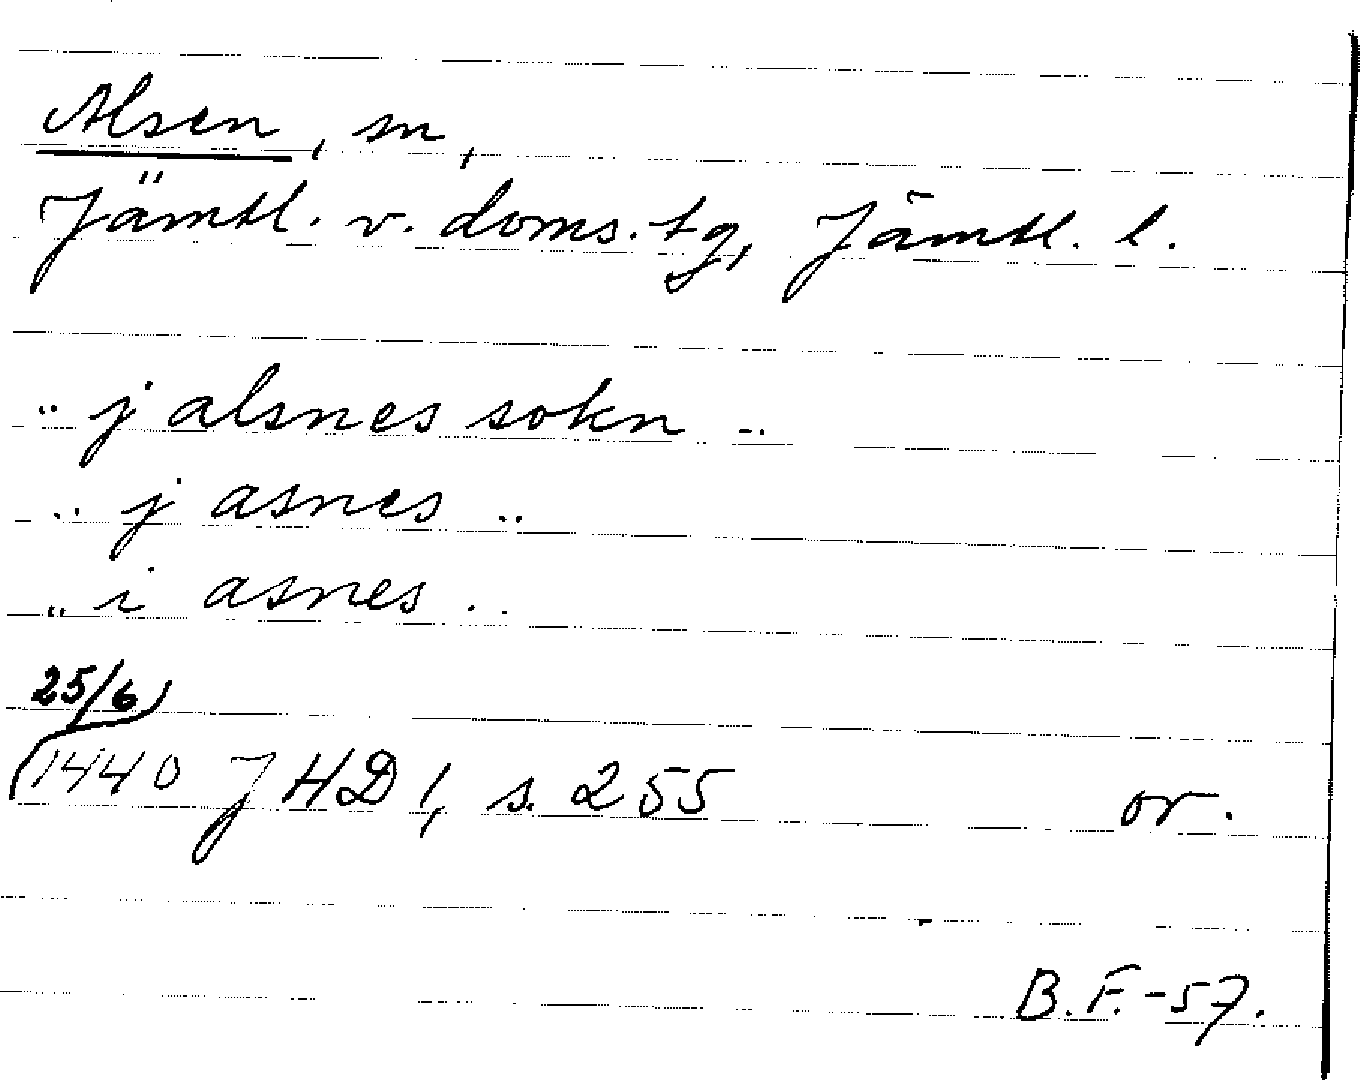 Alsen, sn,
Jämtl. v. doms. tg, Jämtl. l.
.. j alsnes sokn ..
.. j asnes ..
.. i asnes ..
25/6
1440 JHD 1, s. 255 or.
B.F.-57.